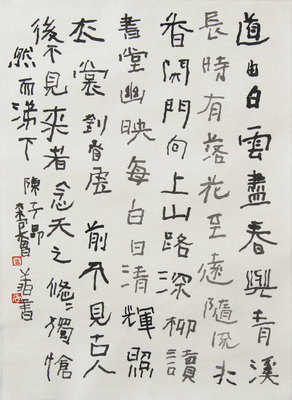 道由白雲盡春與青溪
長時有落花至遠隨流水
香閑門向上山路深柳讀
書堂幽映每白日清輝照
衣裳劉眘虛 前不見古人
後不見來者念天之悠悠獨愴
然而涕下 陳子昂
書